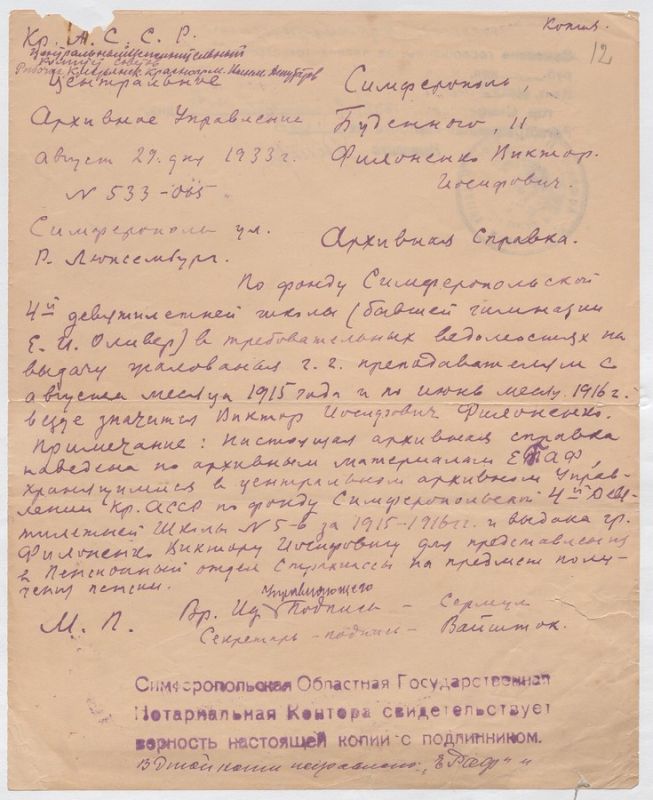 Копия.
12
Кр. А. С. С. Р.
Центральный исполнительный
комитет советов
Рабочих, Крестьянск. красноарм.
Центральное
Архивное Управление
август 29. дня 1933 г.
N 533-005
Симферополь ул.
Р. Люксембург.
Симферополь,
Буденного, 11
Филоненко Виктор.
Иосифович.
Архивная справка.
По фонду Симферопольской
4й девятилетней школы (бывшей гимназии
Е. И. Оливер) в требовательных ведомостях на
выдачу жалованья г. г. преподавателям с
августа месяца 1915 года и по июнь месяц 1916 г.
везде значится Виктор Иосифович Филоненко.
Примечание: Настоящая архивная справка
наведена по архивным материалам ЕГАФ,
хранящимися в центральном архивном Управ-
лении Кр. АССР по фонду Симферопольской 4й Девя-
тилетней Школы N 5-в за 1915-1916 гг. и выдана гр.
Филоненко Виктору Иосифовичу для представления
в Пенсионный отдел Страхкассы на предмет полу-
чения пенсии.
Управляющего
М. П. Вр. Ид. Подпись -
Секретарь - подпись - Вайншток.
Симферопольская Областная Государственная
Нотариальная Контора свидетельствует
верность настоящей копии с подлинником.
В этой копии исправлено: